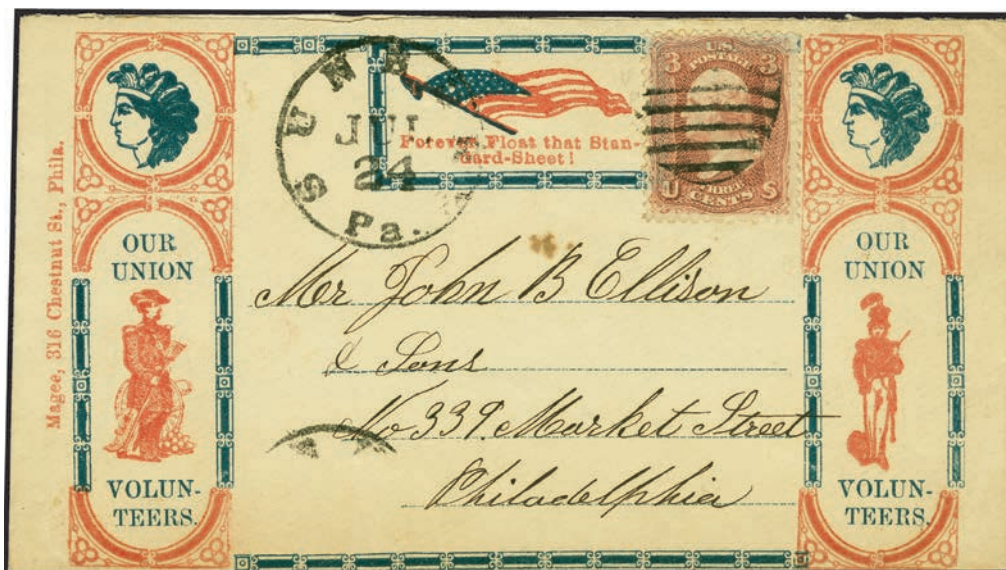 Magee, 316 Chestnut St., Phila.
OUR
UNION
VOLUN-
TEERS.
JUL
24
Pa.
Forever Float that Stan-
dard-Sheet!
3 U.S. 3
POSTAGE
U THREE S
CENTS
Mr John B Ellison
& Sons
No 339. Market Street
Philadelphia
OUR
UNION
VOLUN-
TEERS.